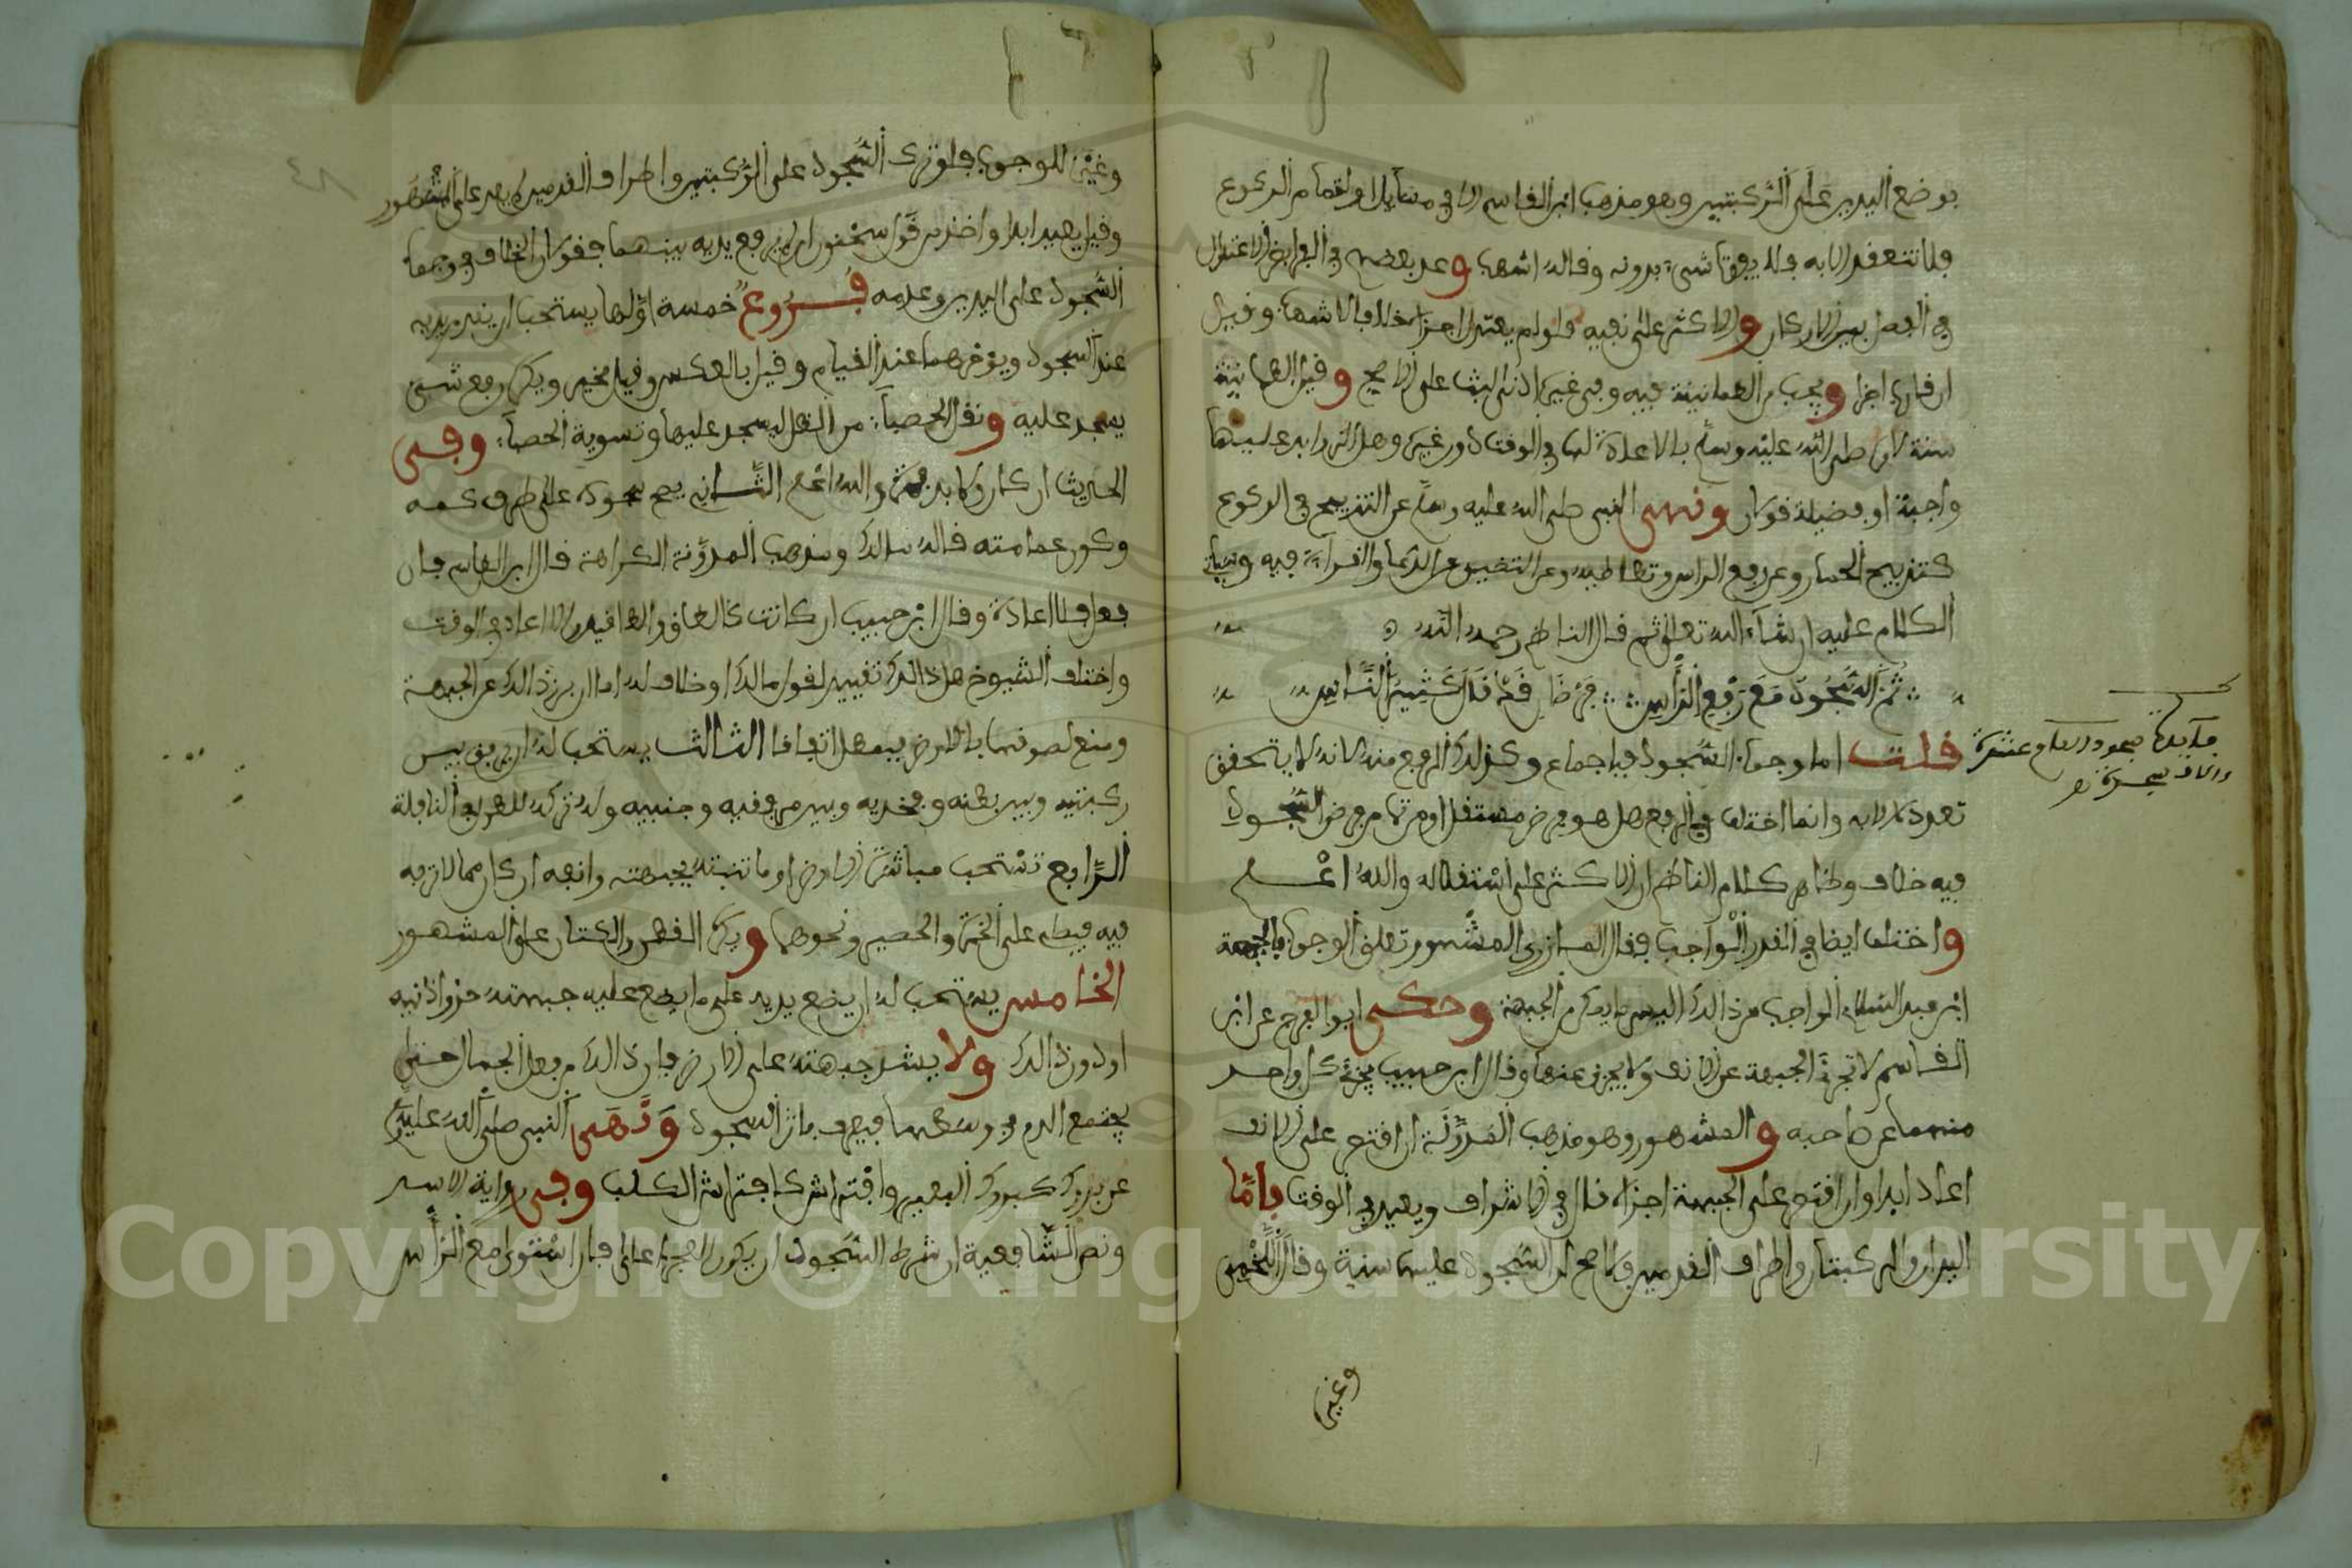 بوضع اليدين على الركبتين وهو مذهب ابن القاسم الا في مسايل اولها من الركوع
فلا تنعقد الا به فلا يفوت شيء بدونه وقاله اشهب وعد بعضهم في الفرايض الاعتدال
في الفصل بين الاركان والاكثر على نفيه فلو لم يعتدل اجزا خلافا لاشهب وقيل
ان قارب اجزا ويجب من الطمانينة فيه وفي غيره ادنى لبث على الاصح وقيل الطمانينة
سنة لامره صلى الله عليه وسلم بالاعادة لها في الوقت دون غيره وهل الزايد عليها
واجبة او فضيلة قولان ونهى النبي صلى الله عليه وسلم عن التذبيح في الركوع
كتذبيح الحمار وعن رفع الراس وتطاطيه وعن التطبيق وعن الدعا والقراءة فيه وسياتي
الكلام عليه ان شاء الله تعالى ثم قال الناظم رحمه الله
ثم السجود مع رفع الراس فرضا قد قال كثير الناس
قلت اما وجوب السجود فباجماع وكذلك الرفع منه لانه لا يتحقق
تعدده الا به وانما اختلف في الرفع هل هو فرض مستقل او من تمام فرض السجود
فيه خلاف وظاهر كلام الناظم ان الاكثر على استقلاله والله اعلم
واختلف ايضا في القدر الواجب فقال المازري المشهور تعلق الوجوب بالجبهة
ابن عبد السلام الواجب من ذالك اليسير ما يمكن من الجبهة وحكى ابو الفرج عن ابن
القاسم لا تجزئ الجبهة عن الانف ولا يجزئ عنها وقال ابن حبيب يجزئ كل واحد
منهما عن صاحبه والمشهور وهو مذهب المدونة ان اقتصر على الانف
اعاد ابدا وان اقتصر على الجبهة اجزاه قال في الاشراف ويعيد في الوقت فاما
اليدان والركبتان واطراف القدمين فالاصح ان السجود عليهما سنة وقال اللخمي
وغيره
فايدة سجود القران عشرة
والاف سجدة
وغيره للوجوب فلو ترك السجود على الركبتين واطراف القدمين لم يعد على المشهور
وقيل يعيد ابدا واخذ من قول سحنون ان لم يرفع يديه بينهما فقولان الخلاف في وجوب
السجود على اليدين وعدمه فروع خمسة اولها يستحب ان يقدم يديه
عند السجود ويؤخرهما عند القيام وقيل بالعكس وقيل مخير ويكره رفع شيء
يسجد عليه ونقل الحصبا من الظل ليسجد عليها وتسوية الحصبا وفي
الحديث ان كان ولا بد فمرة والله اعلم الثاني يصح سجوده على طرف كمه
وكور عمامته قاله مالك ومذهب المدونة الكراهة قال ابن القاسم فان
فعل فلا اعادة وقال ابن حبيب ان كانت كالطاق والطاقين والا اعاد في الوقت
واختلف الشيوخ هل ذالك تفسير لقول مالك او خلاف له اما ان برز ذالك عن الجبهة
ومنع لصوقها بالارض بطل اتفاقا الثالث يستحب له ان يفرق بين
ركبتيه وبين بطنه وفخذيه وبين مرفقيه وجنبيه وله تركه للطول في النافلة
الرابع تستحب مباشرة الارض او ما تنبته بجبهته وانفه ان كان مما لا ترفه
فيه فيصلي على الخمرة والحصير ونحوهما ويكره القطن والكتان على المشهور
الخامس يستحب له ان يضع يديه على ما يضع عليه جبهته حذو اذنيه
او دون ذالك ولا يشد جبهته على الارض فان ذالك من فعل الجهال حتى
يجتمع الدم في وسطها فيعرف باثر السجود ونهى النبي صلى الله عليه
عن بروك كبروك البعير وافتراش كافتراش الكلب وفي رواية الاسد
ونص الشافعية ان شرط السجود ان يكون العجز اعلى فان استوى مع الراس